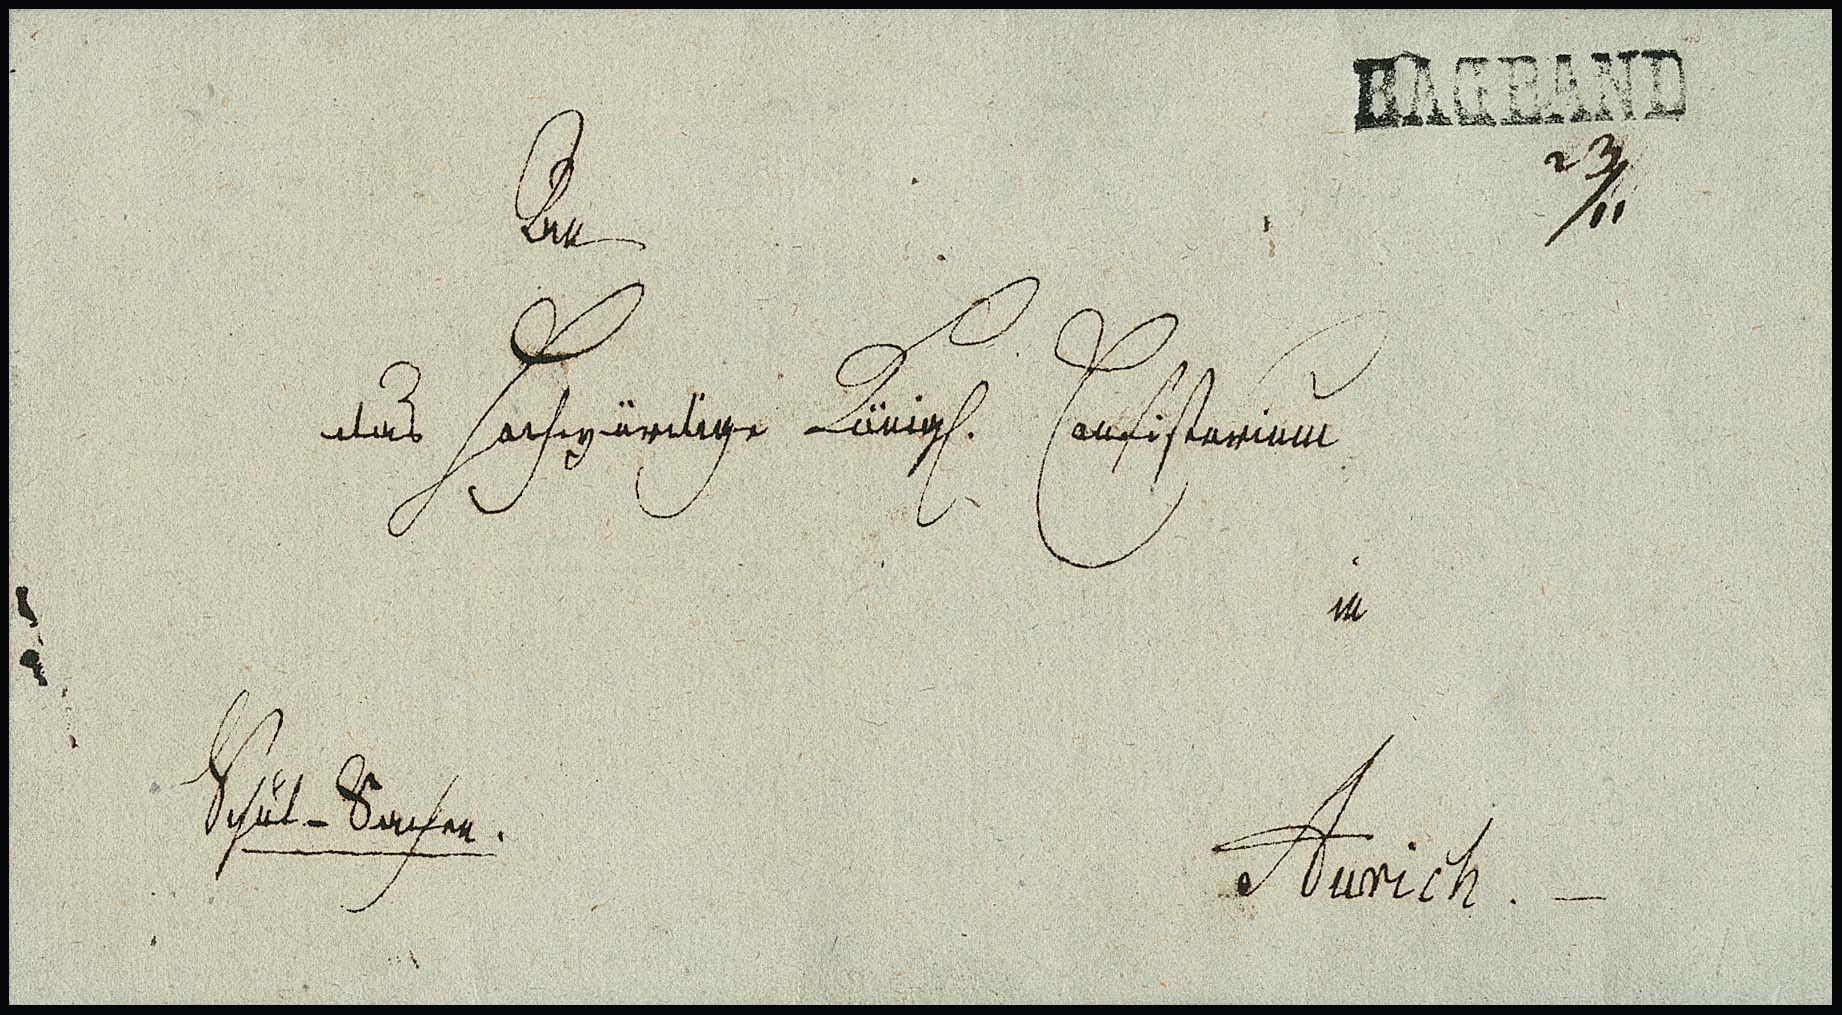 BAGBAND
23/11
An
das Hochwürdige Königl. Consistorium
in
Schul-Sachen.
Aurich. —